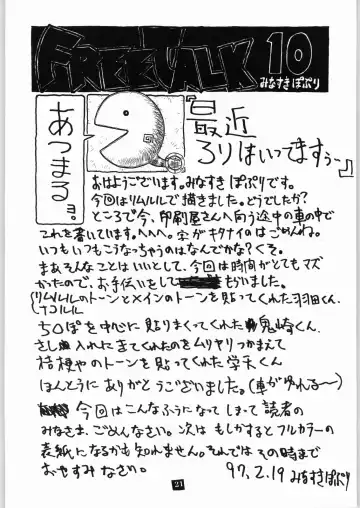 FREE TALK 10
みなすきぽぷり
あつまるヨ。
『最近
ろりはいってますぅ〜』
おはようございます。みなすき ぽぷりです。
今回はリムルルで描きました。どうでしたか?
ところで今、印刷屋さんへ向う途中の車の中で
これを書いています。へへへ。字がキタナイのはごめんね。
いつもいつもこうなっちゃうのはなんでかな?くそ。
まあそんなことはいいとして、今回は時間がとてもマズ
かったので、お手伝いをしてもらいました。
リムルルのトーンとメインのトーンを貼ってくれた羽田くん.
ナコルル
ちOぽを中心に貼りまくってくれた鬼崎くん.
さし入れにきてくれたのをムリヤリつかまえて
桔梗やのトーンを貼ってくれた学天くん
ほんとうにありがとうございました。(車がゆれる〜)
今回はこんなふうになってしまって読者の
みなさま、ごめんなさい。次はもしかするとフルカラーの
表紙になるかも知れません。それではその時まで
おやすみなさい。 97.2.19 みなすきぽぷり
21